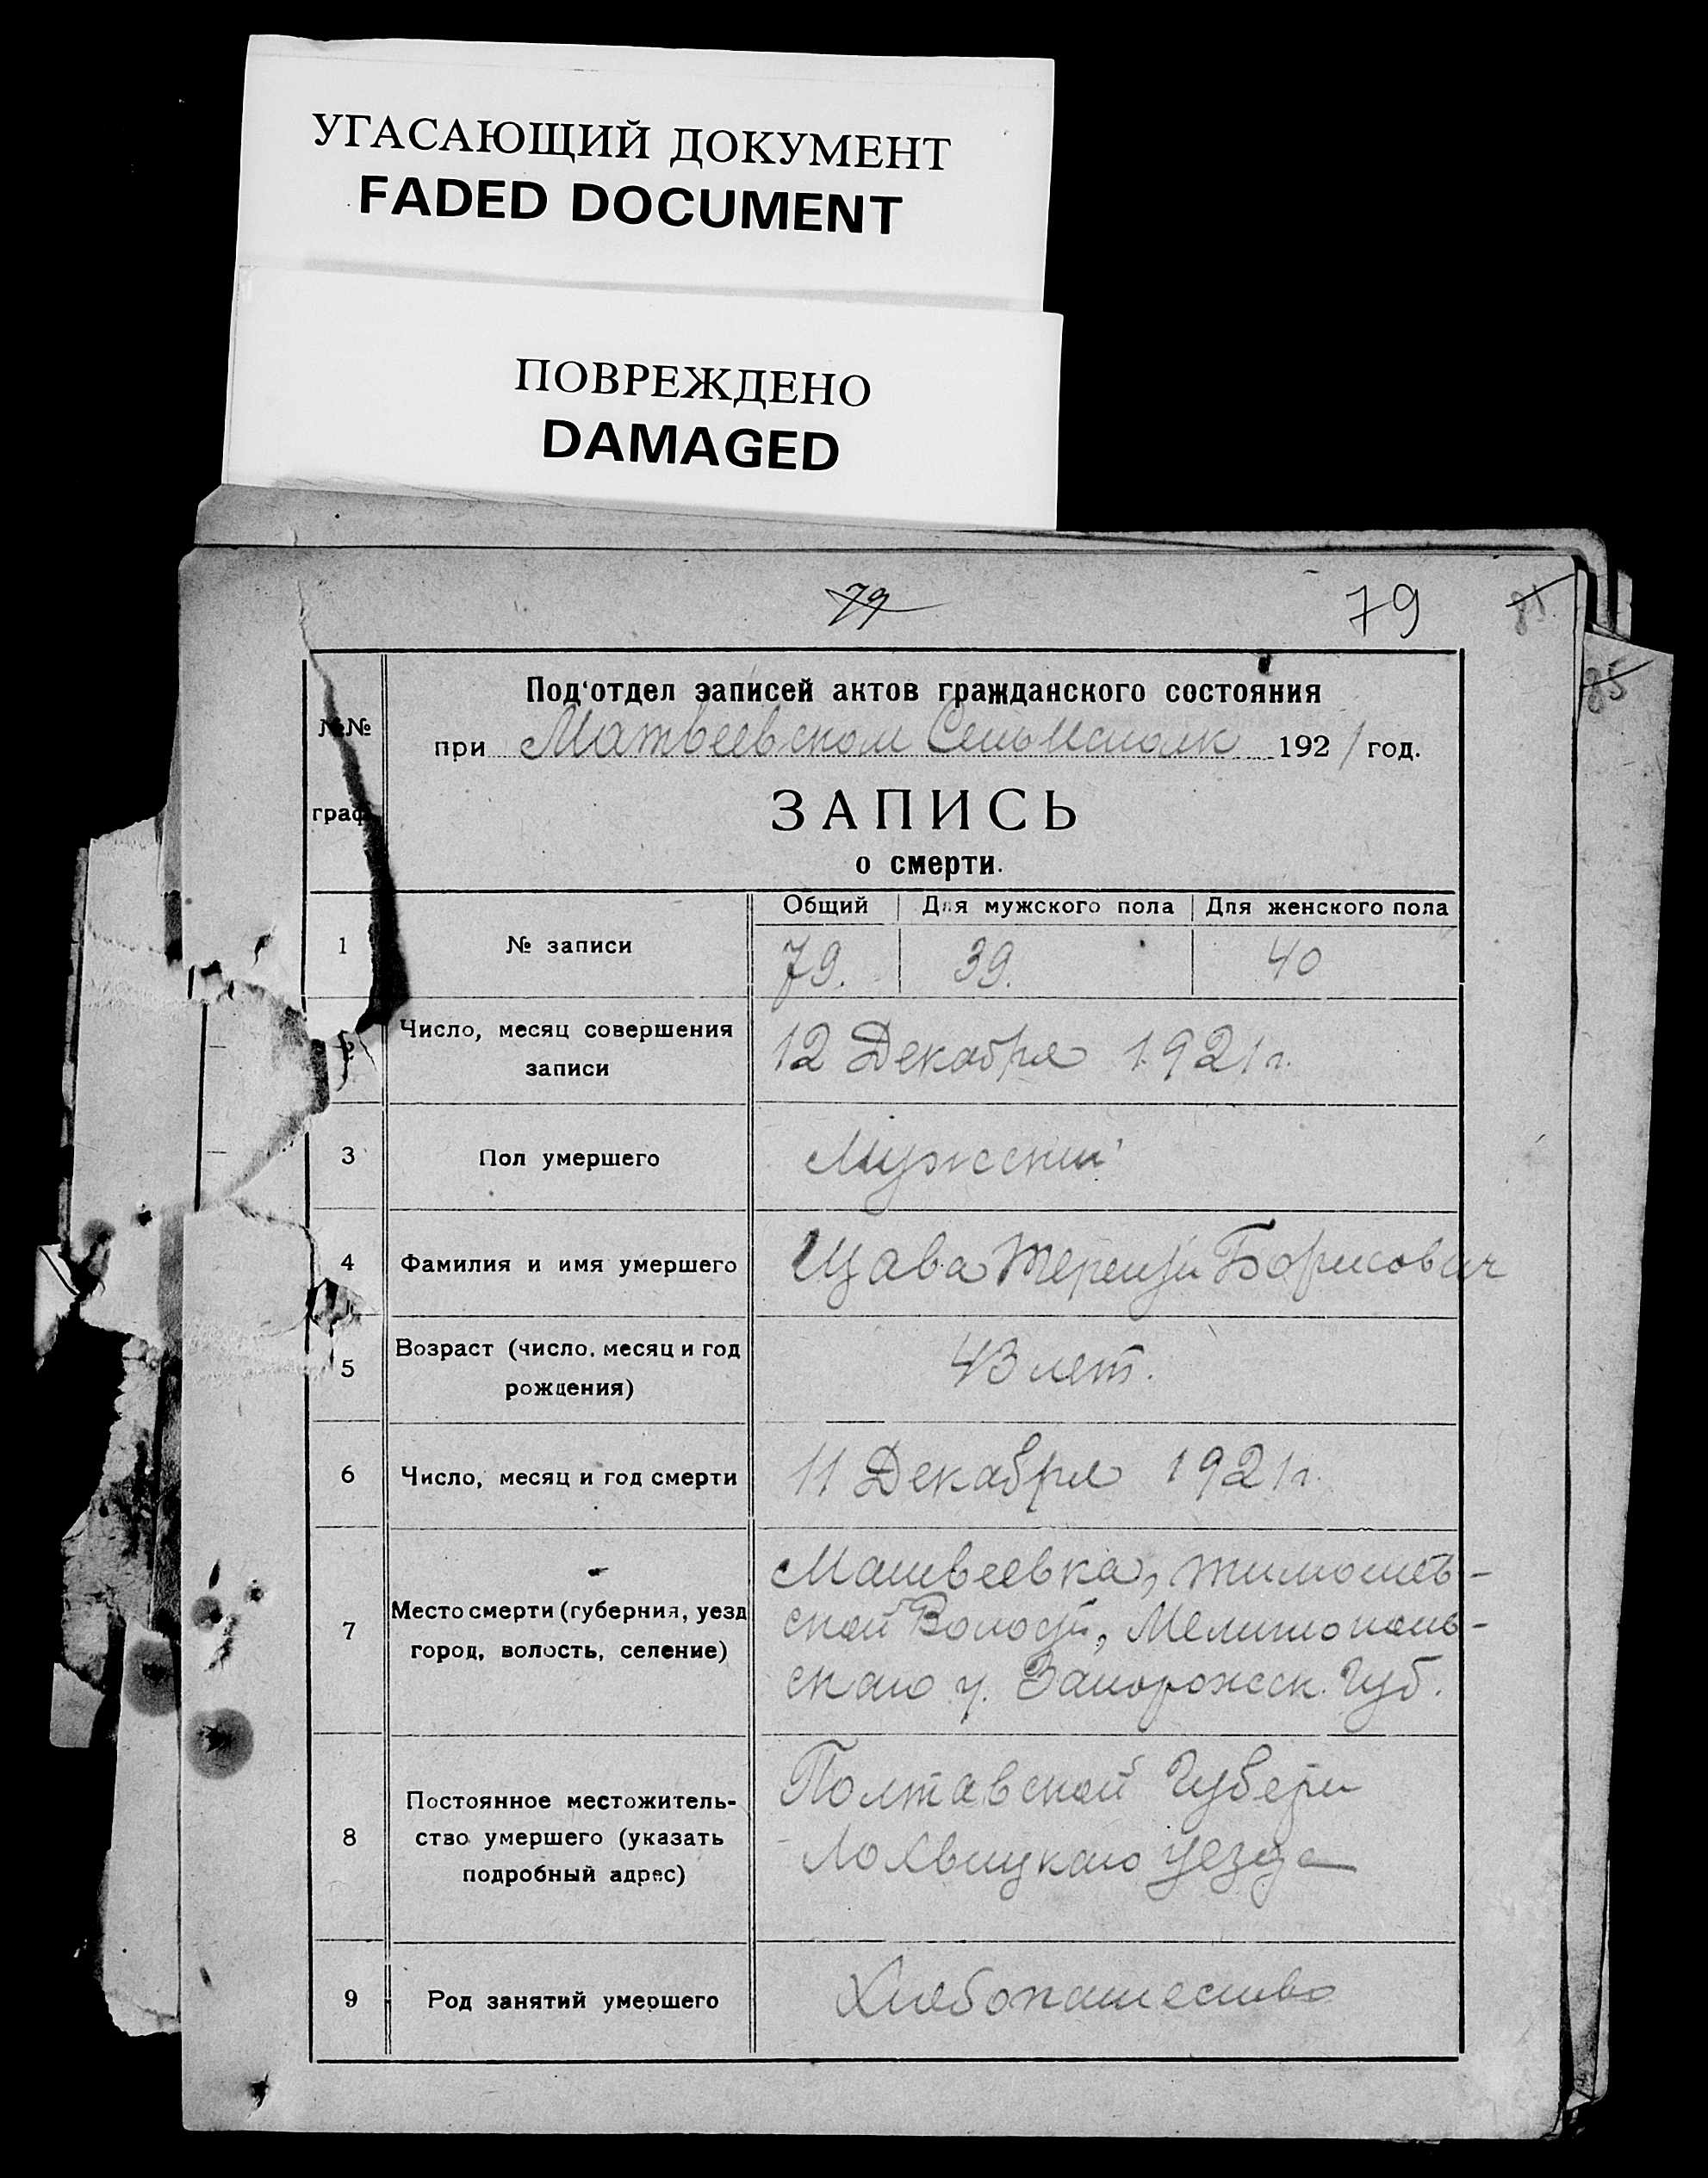 УГАСАЮЩИЙ ДОКУМЕНТ
FADED DOCUMENT
ПОВРЕЖДЕНО
DAMAGED
79 79 85
85
№№ граф
Под‘отдел записей актов гражданского состояния
при Матвеевском СельИсполк 1921 год.
ЗАПИСЬ
о смерти.
Общий Для мужского пола Для женского пола
1 № записи 79. 39. 40
2 Число, месяц совершения
записи 12 Декабря 1921 г.
3 Пол умершего Мужский
4 Фамилия и имя умершего Щава Терензи Борисович
5 Возраст (число, месяц и год
рождения) 43 лет.
6 Число, месяц и год смерти 11 Декабря 1921 г.
7 Место смерти (губерния, уезд
город, волость, селение)
Матвеевка, Тимошев-
ской Волости, Мелитополь-
скаго у. Запорожск. Губ.
8 Постоянное местожитель-
ство умершего (указать
подробный адрес)
Полтавской Губерн
Лохвицкаго уезда
9 Род занятий умершего Хлебопашество